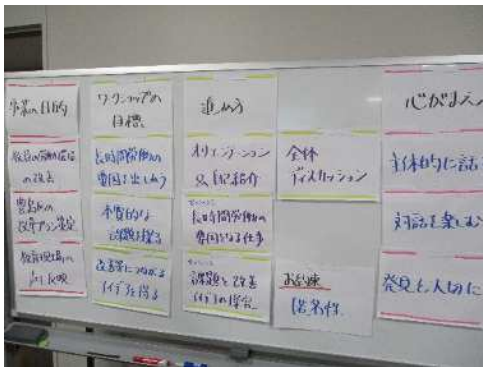 事業の目的
教員の労働環境
の改善
豊島区の
改革プラン策定
教育現場の
声を反映
ワークショップの
目標
長時間労働の
要因を出し合う
本質的な
課題を探る
改善策につながる
アイデアを得る
進め方
オリエンテーション
& 自己紹介
長時間労働の
要因となる仕事
課題と改善
アイデアの検討
全体
ディスカッション
お約束
匿名性
心がまえ
主体的に話
対話を楽しむ
発見を大切に